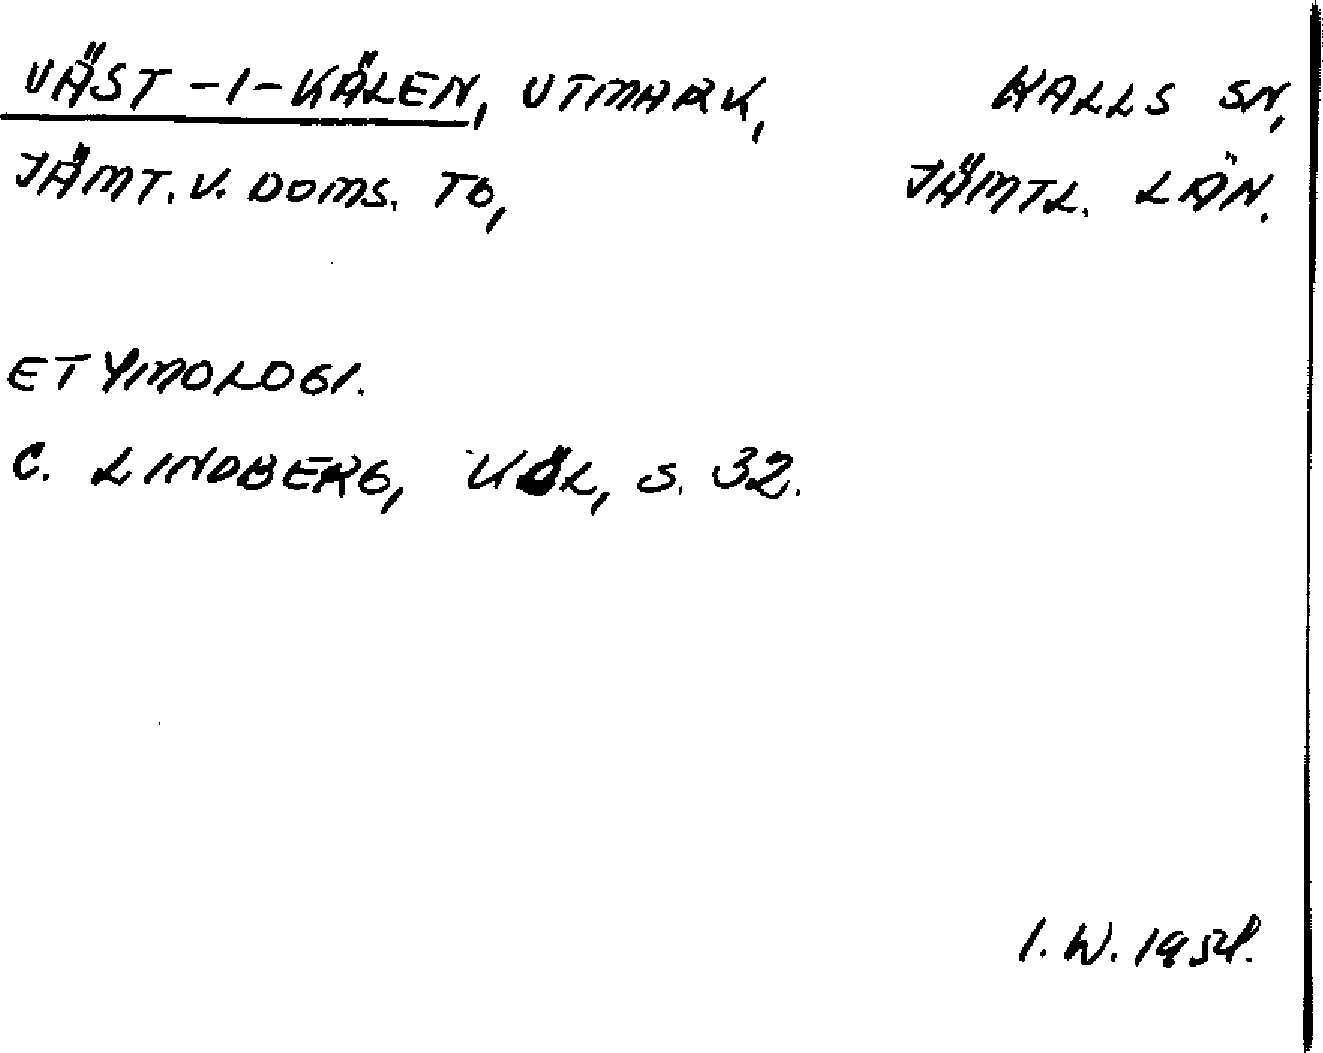 VÄST-I-KÄLEN, UTMARK, KALLS SN,
JÄMT. V. DOMS. TG, JÄMTL. LÄN.
ETYMOLOGI.
C. LINDBERG, KÖL, S. 32.
I. W. 1954.